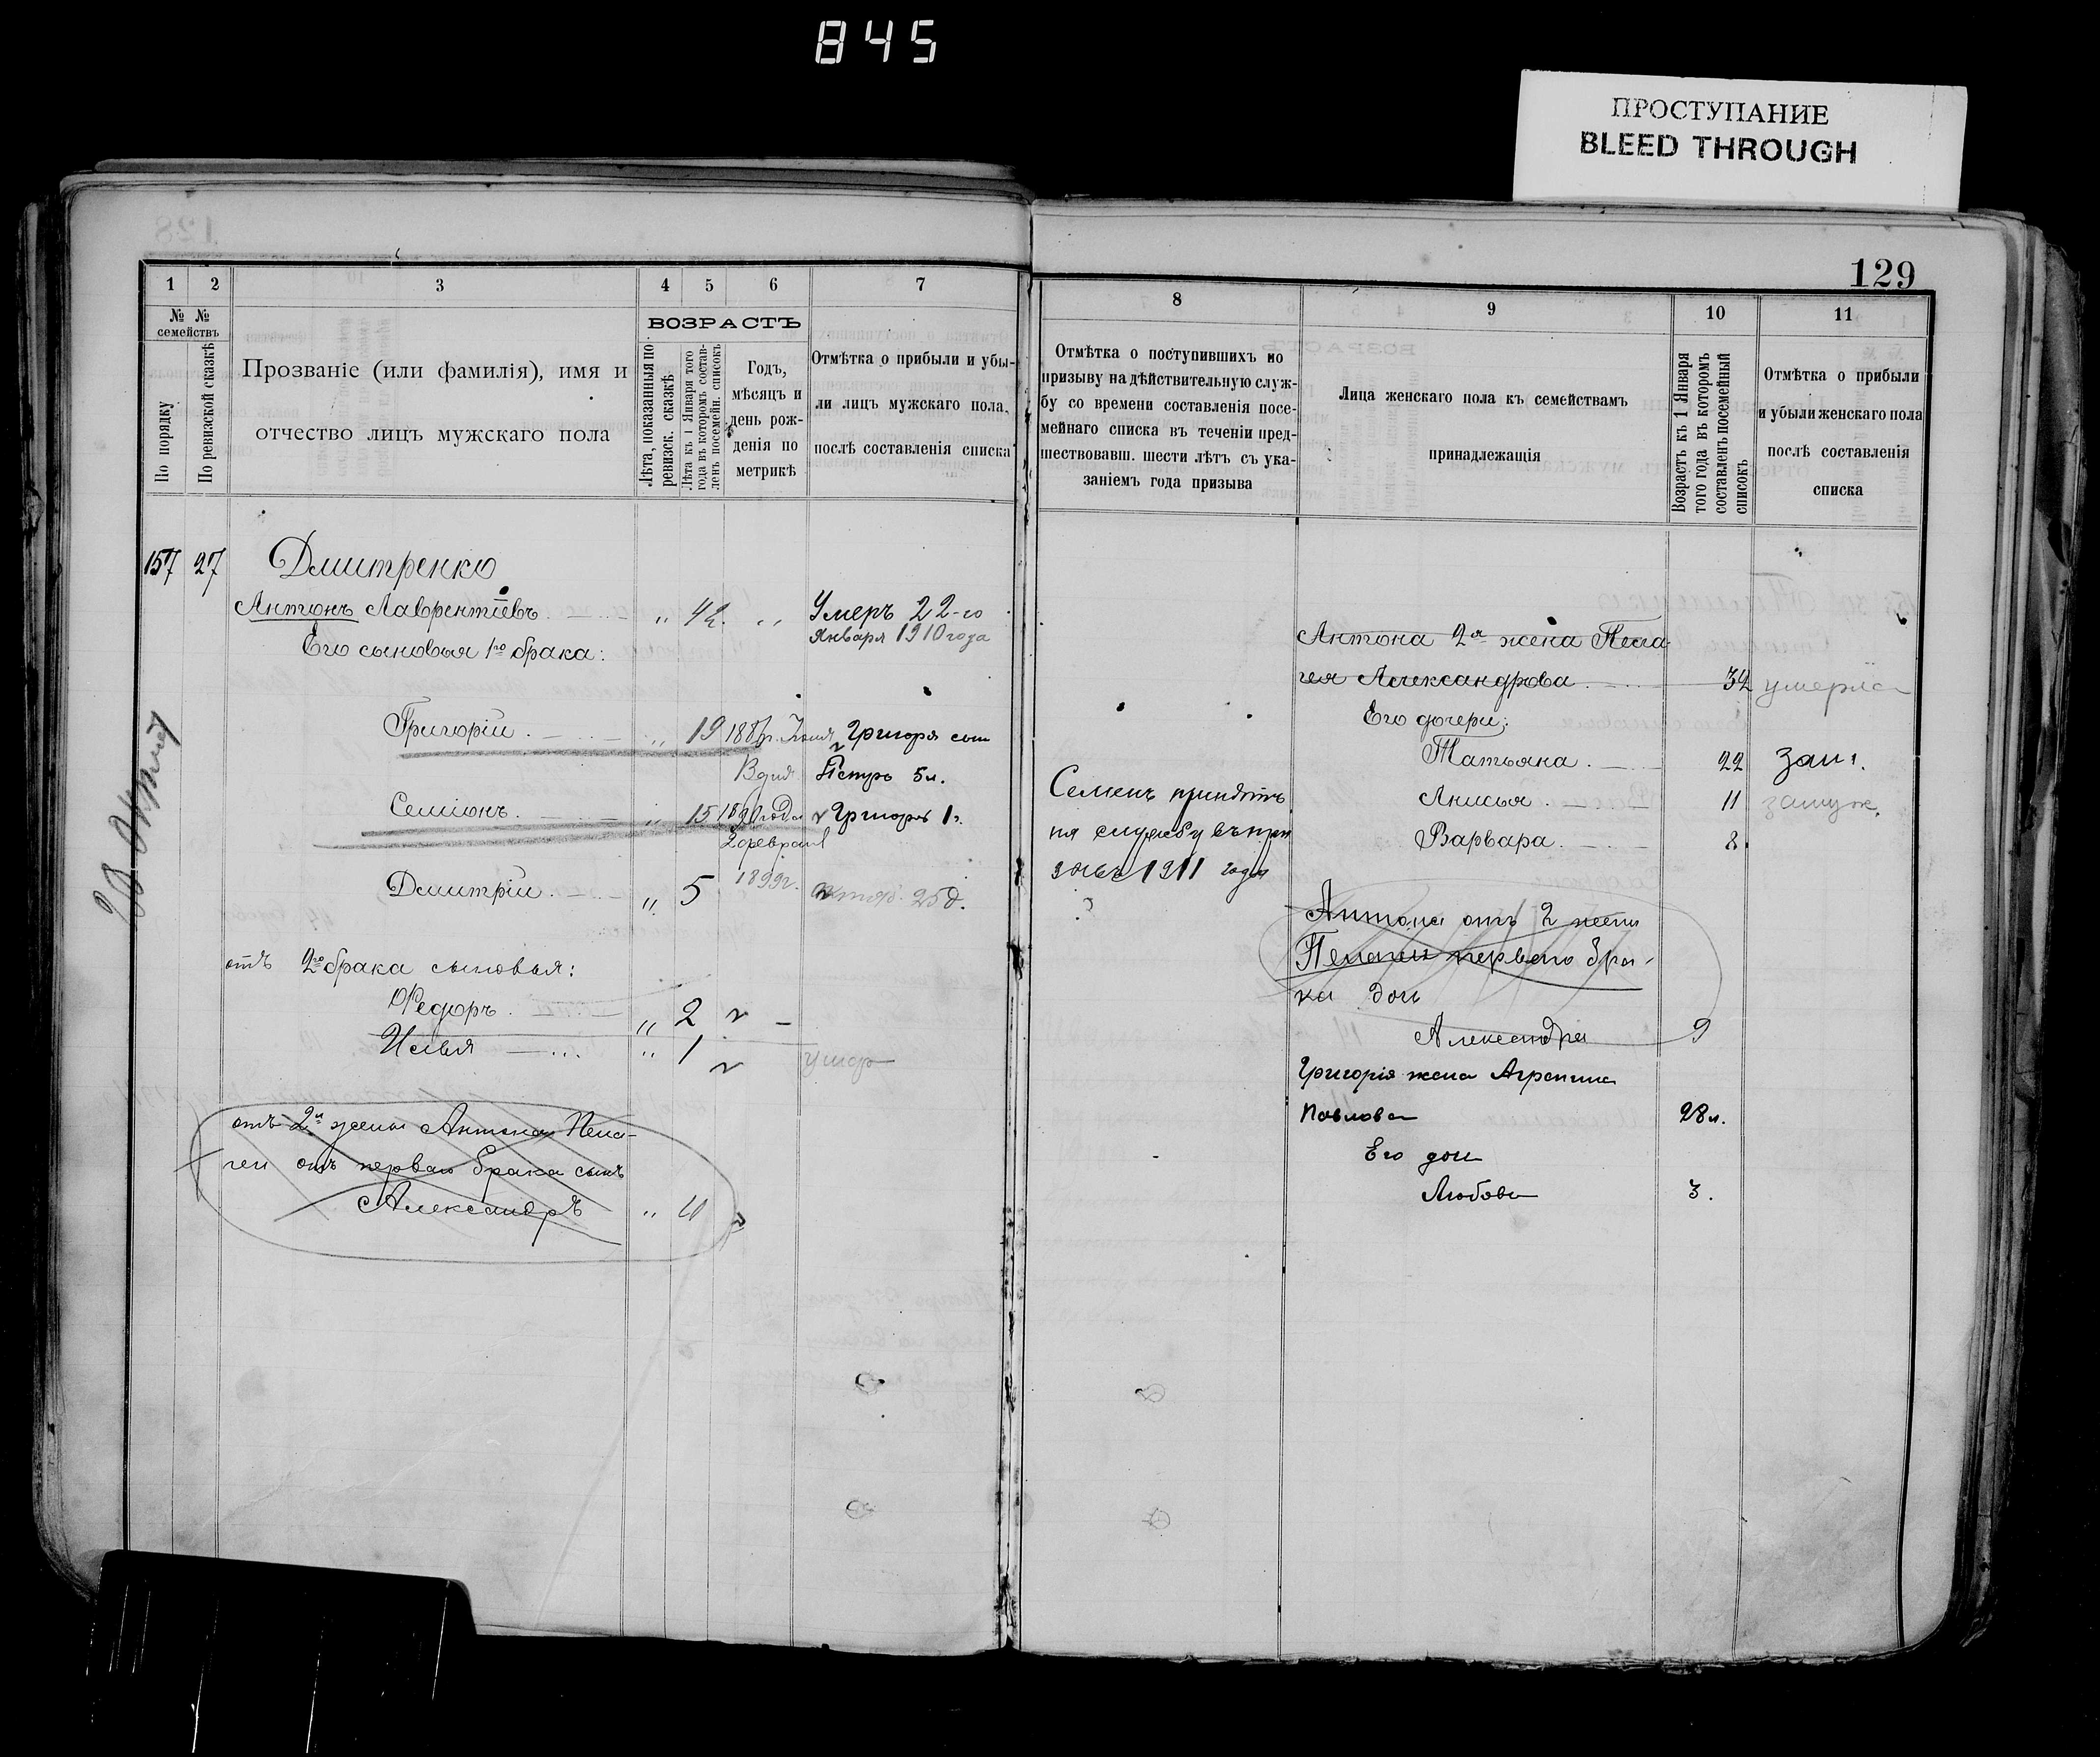 845
ПРОСТУПАНИЕ
BLEED THROUGH
129
1 2 3 4 5 6 7
№ № семействъ
По порядку
По ревизской сказкѣ
Прозваніе (или фамилія), имя и
отчество лицъ мужскаго пола
ВОЗРАСТЪ
Лѣта, показанныя по
ревизск. сказкѣ
Лѣта къ 1 Января того
года въ которомъ состав-
ленъ посемейн. списокъ
Годъ,
мѣсяцъ и
день рож-
денія по
метрикѣ
Отмѣтка о прибыли и убы-
ли лицъ мужскаго пола,
послѣ составленія списка
157 27 Дмитренко
Антонъ Лаврентіевъ „ 42 „ Умеръ 22-го
Января 1910 года
Его сыновья 1го брака:
Григорій „ 19 Григорія сын
Петръ 5 л.
Семіонъ „ 15 Григорій 1 г.
Дмитрій „ 5 1899г. 25 д.
отъ 2го брака сыновья:
Федоръ „ 2
Илья „ 1 умер
отъ 2й жены Антона Пела-
геи отъ перваго брака сынъ
Александръ „
8 9 10 11
Отмѣтка о поступившихъ по
призыву на дѣйствительную служ-
бу со времени составленія посе-
мейнаго списка въ теченіи пред-
шествовавш. шести лѣтъ съ ука-
заніемъ года призыва
Лица женскаго пола къ семействамъ
принадлежащія
Возрастъ къ 1 Января
того года въ которомъ
составленъ посемейный
списокъ
Отмѣтка о прибыли
и убыли женскаго пола
послѣ составленія
списка
Семенъ принятъ
на службу въ при
зывъ 1911 года
Антона 2я жена Пела
гея Александрова 32 умерла
Его дочери:
Татьяна 22 зам.
Анисья 11 замуж.
Варвара 8
Антона отъ 2 жены
Пелагеи перваго бра-
ка доч
Александра 9
Григорія жена Агрепина
Павлова 28 л.
Его доч
Любовь 3.